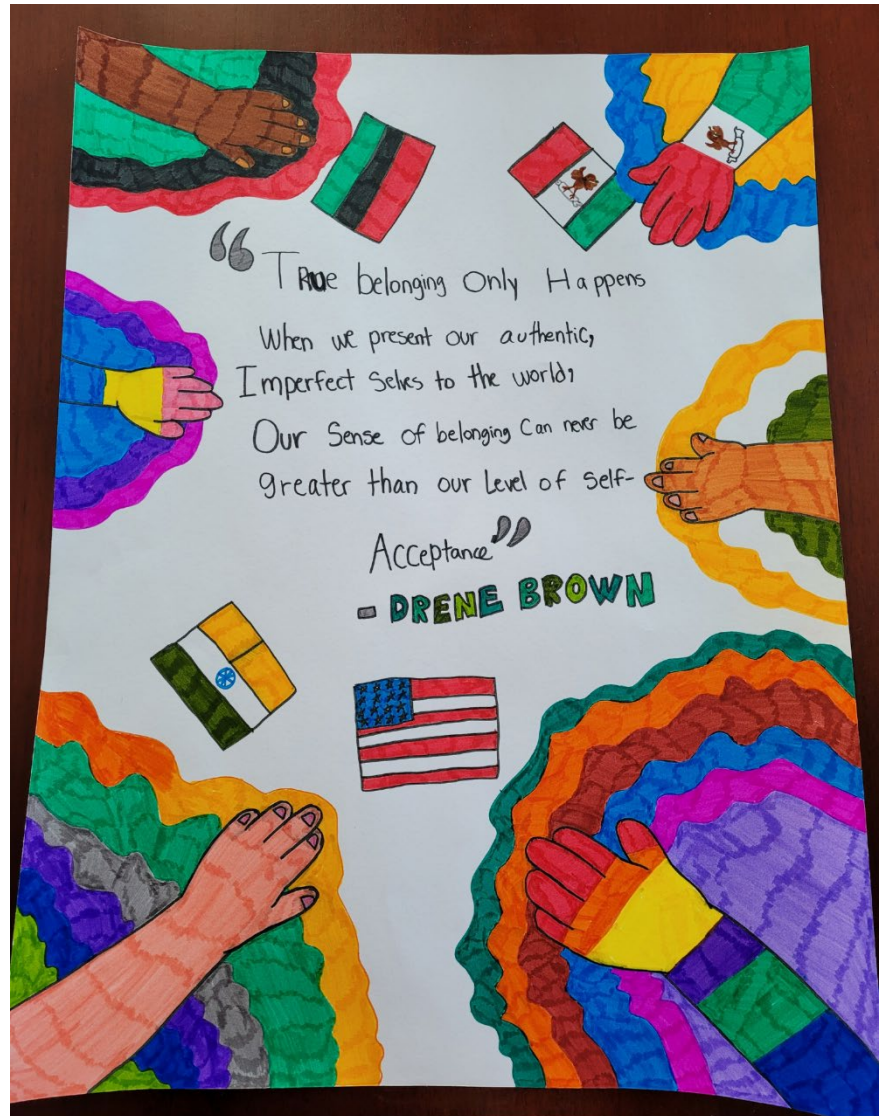 “True belonging Only Happens
When we present our authentic,
Imperfect Selves to the world,
Our Sense of belonging Can never be
greater than our Level of Self-
Acceptance”
- DRENE BROWN